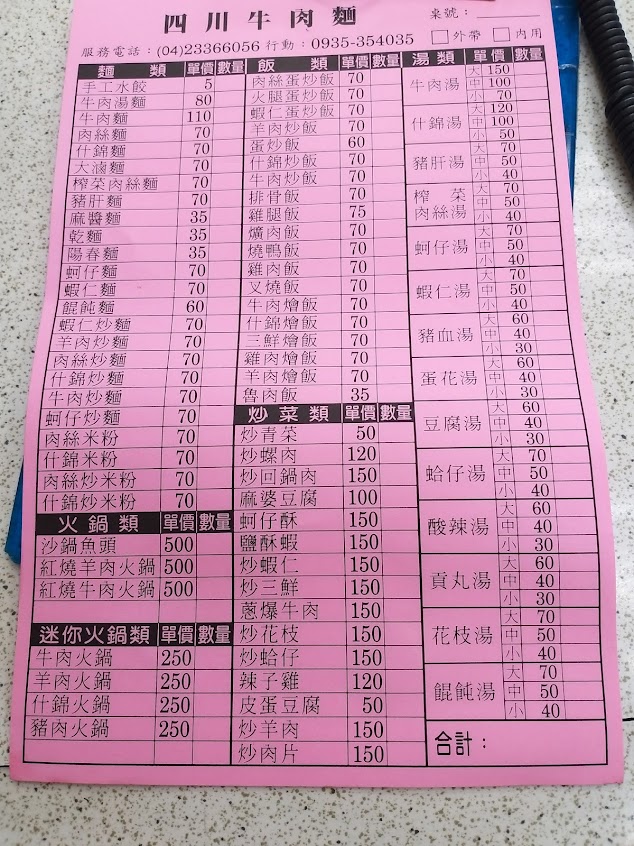 四川牛肉麵
桌號：
服務電話：(04)23366056 行動：0935-354035 □外帶 □內用
麵類 單價 數量
手工水餃 5
牛肉湯麵 80
牛肉麵 110
肉絲麵 70
什錦麵 70
大滷麵 70
榨菜肉絲麵 70
豬肝麵 70
麻醬麵 35
乾麵 35
陽春麵 35
蚵仔麵 70
蝦仁麵 70
餛飩麵 60
蝦仁炒麵 70
羊肉炒麵 70
肉絲炒麵 70
什錦炒麵 70
牛肉炒麵 70
蚵仔炒麵 70
肉絲米粉 70
什錦米粉 70
肉絲炒米粉 70
什錦炒米粉 70
火鍋類 單價 數量
沙鍋魚頭 500
紅燒羊肉火鍋 500
紅燒牛肉火鍋 500
迷你火鍋類 單價 數量
牛肉火鍋 250
羊肉火鍋 250
什錦火鍋 250
豬肉火鍋 250
飯類 單價 數量
肉絲蛋炒飯 70
火腿蛋炒飯 70
蝦仁蛋炒飯 70
羊肉炒飯 70
蛋炒飯 60
什錦炒飯 70
牛肉炒飯 70
排骨飯 70
雞腿飯 75
爌肉飯 70
燒鴨飯 70
雞肉飯 70
叉燒飯 70
牛肉燴飯 70
什錦燴飯 70
三鮮燴飯 70
雞肉燴飯 70
羊肉燴飯 70
魯肉飯 35
炒菜類 單價 數量
炒青菜 50
炒螺肉 120
炒回鍋肉 150
麻婆豆腐 100
蚵仔酥 150
鹽酥蝦 150
炒蝦仁 150
炒三鮮 150
蔥爆牛肉 150
炒花枝 150
炒蛤仔 150
辣子雞 120
皮蛋豆腐 50
炒羊肉 150
炒肉片 150
湯類 單價 數量
牛肉湯 大 150
中 100
小 70
什錦湯 大 120
中 100
小 50
豬肝湯 大 70
中 50
小 40
榨菜肉絲湯 大 70
中 50
小 40
蚵仔湯 大 70
中 50
小 40
蝦仁湯 大 70
中 50
小 40
豬血湯 大 60
中 40
小 30
蛋花湯 大 60
中 40
小 30
豆腐湯 大 60
中 40
小 30
蛤仔湯 大 70
中 50
小 40
酸辣湯 大 60
中 40
小 30
貢丸湯 大 60
中 40
小 30
花枝湯 大 70
中 50
小 40
餛飩湯 大 70
中 50
小 40
合計：